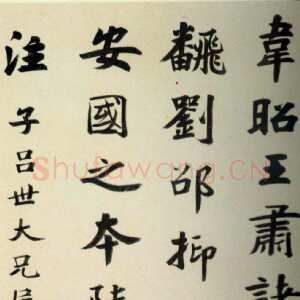 韋昭王肅
飜劉邵抑
安國之本陸
注
子呂世大兄
Shufawang.CN